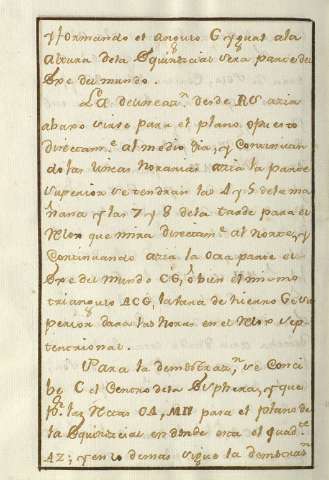 y formando el angulo G igual ala
altura dela Equinocial sera parte del
Exe del mundo.
La delineaz.n desde RS azia
abaxo sirve para el plano opuesto
directam.te al medio dia, y continuan
do las lineas horarias azia la parte
superior se tendran las 4 y 5 dela ma
ñana y las 7 y 8 dela tarde para el
Relox que mira directam.te al Norte, y
Continuando azia la otra parte el
Exe del Mundo CG, ò bien el mismo
triangulo ACG, la vara de hierro G su
perior dara las horas en el Relox sep
tentrional.
Para la demostraz.n, se conci
be C el Centro dela Esphera, y que
p.r las Rectas CA, MN para el plano de
la Equinocial en donde esta el quad.te
AZ; y en lo demas sigue la demostraz.n